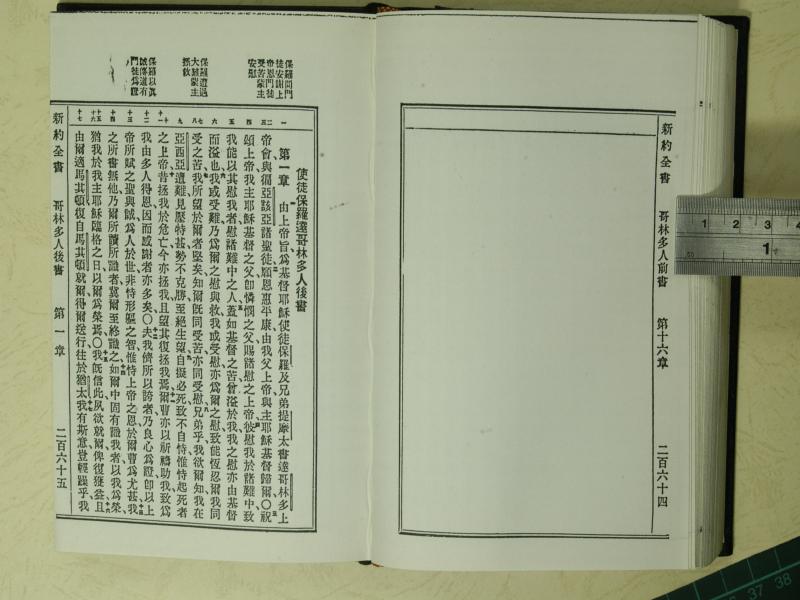 新約全書 哥林多人前書 第十六章 二百六十四
使徒保羅達哥林多人後書
第一章 由上帝旨爲基督耶穌使徒保羅及兄弟提摩太書達哥林多上
帝會與徧亞該亞諸聖徒願恩惠平康由我父上帝與主耶穌基督歸爾〇祝
頌上帝我主耶穌基督之父卽憐憫之父賜諸慰之上帝彼慰我於諸難中致
我能以其慰我者慰諸難中之人蓋如基督之苦曾溢於我我之慰亦由基督
而溢也我或受難乃爲爾之慰與救我或受慰亦爲爾之慰致能恆忍爾我同
受之苦我所望於爾者堅矣知爾旣同受苦亦同受慰兄弟乎我欲爾知我在
亞西亞遭難見壓特甚勢不克勝至絕生望自擬必死致不自恃惟恃起死者
之上帝昔拯我於危亡今亦拯我且望其復拯我焉爾曹亦以祈禱助我致爲
我由多人得恩因而感謝者亦多矣〇夫我儕所以誇者乃良心爲證卽以上
帝所賦之聖與誠爲人於世非恃形軀之智惟恃上帝之恩於爾曹爲尤甚我
之所書無他乃爾所讀所識者冀爾至終識之如爾中固有識我者以我爲榮
猶我於我主耶穌臨格之日以爾爲榮焉〇我旣信此夙欲就爾俾復獲益且
由爾適馬其頓復自馬其頓就爾得爾送行往於猶太我有斯意豈輕躁乎我
保羅問門
徒安謝上
帝恩門徒
受苦蒙主
安慰
保羅遭遇
大難蒙主
拯救
保羅以眞
誠傳道有
門徒爲證
新約全書 哥林多人後書 第一章 二百六十五